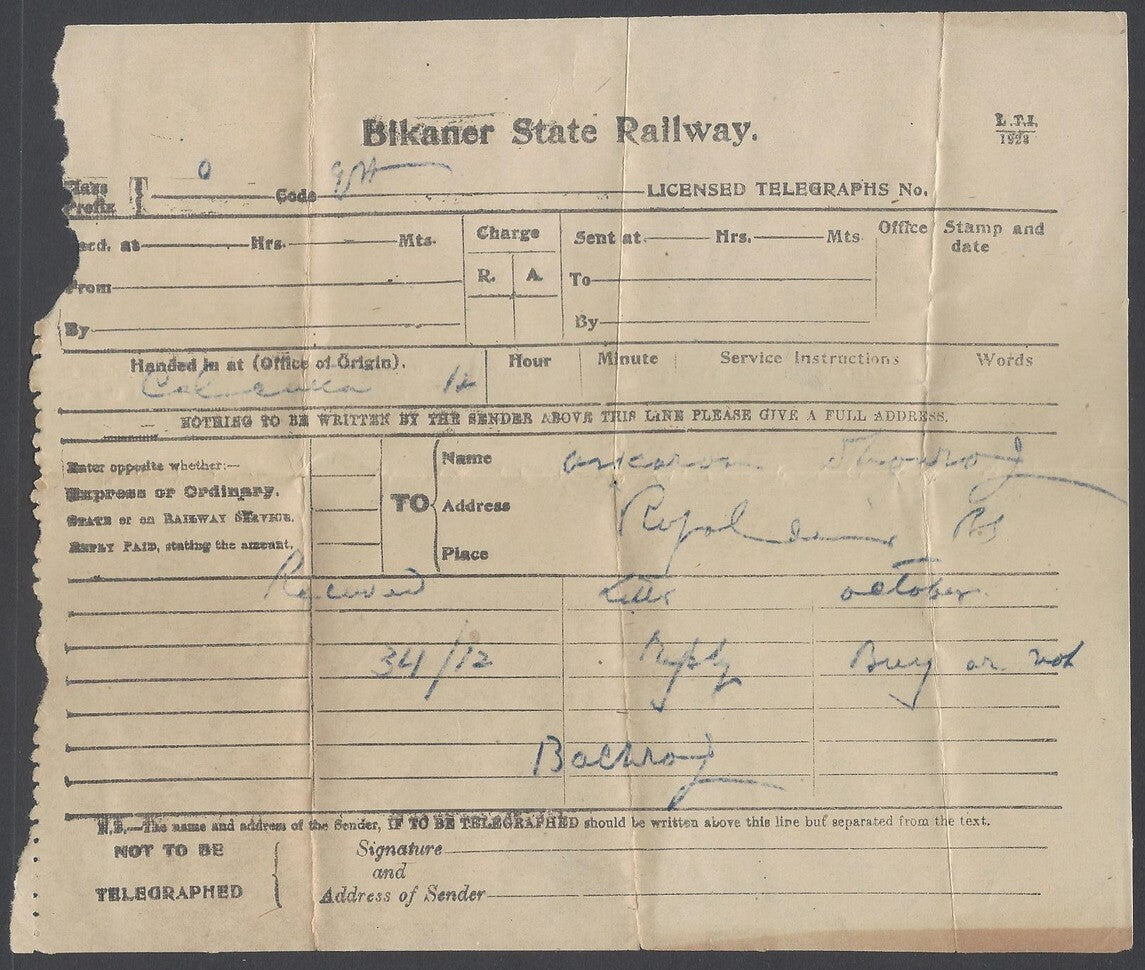 Bikaner State Railway.
L.T.I.
1923
Class Prefix T O Code LICENSED TELEGRAPHS No.
Recd. at Hrs. Mts. Charge Sent at Hrs. Mts. Office Stamp and date
From R. A. To
By By
Handed in at (Office of Origin). Hour Minute Service Instructions Words
Calcutta 12
NOTHING TO BE WRITTEN BY THE SENDER ABOVE THIS LINE PLEASE GIVE A FULL ADDRESS.
Enter opposite whether:—
Express or Ordinary.
STATE or on RAILWAY SERVICE.
REPLY PAID, stating the amount.
TO
Name
Address
Place
Received Letter october
34/12 Reply Buy or not
Bachraj
N.B.—The name and address of the Sender, IF TO BE TELEGRAPHED should be written above this line but separated from the text.
NOT TO BE TELEGRAPHED
Signature
and
Address of Sender